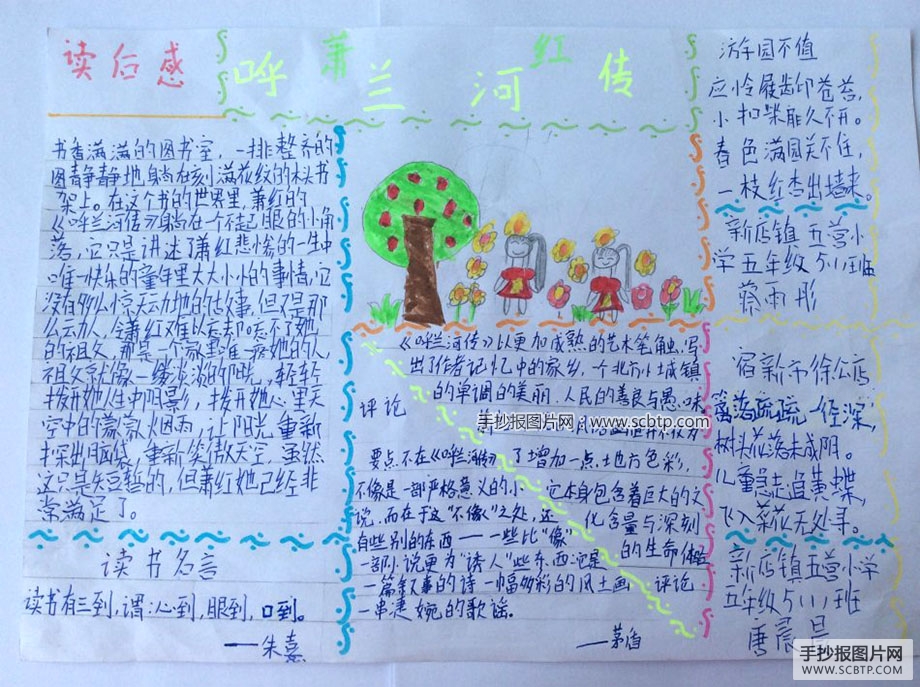 读后感
萧红
呼兰河传
书香满满的图书室，一排整齐的
图静静地躺在刻满花纹的木书
架上。在这个书的世界里，萧红的
《呼兰河传》躺在一个不起眼的小角
落，它只是讲述了萧红悲惨的一生中
唯一快乐的童年里大大小小的事情，它
没有多么惊天动地的故事，但又是那
么动人，令萧红难以忘去忘不了她
的祖父，那是一个家里唯一疼她的人，
祖父就像一缕淡淡的阳光，轻轻
拨开她人生中阴影，拨开她心里天
空中的蒙蒙烟雨，让阳光重新
探出脑袋，重新笑傲天空，虽然
这只是短暂的，但萧红她已经非
常满足了。
读书名言
读书有三到，谓：心到，眼到，口到。
——朱熹
《呼兰河传》以更加成熟的艺术笔触，写
出了作者记忆中的家乡，一个北方小城镇
的单调的美丽、人民的善良与愚昧
评论
要点不在《呼兰河传》
不像是一部严格意义的小
说，而在于这"不像"之处，还
有些别的东西——一些比"像"
一部小说更为"诱人"些东西：它是
一篇叙事的诗一幅多彩的风土画
一串凄婉的歌谣。
——茅盾
了增加一点地方色彩，
它本身包含着巨大的文
化含量与深刻
的生命体验
评论
游园不值
应怜屐齿印苍苔，
小扣柴扉久不开。
春色满园关不住，
一枝红杏出墙来。
新店镇五营小
学五年级5(1)班
蔡雨彤
宿新市徐公店
篱落疏疏一径深，
树头花落未成阴。
儿童急走追黄蝶，
飞入菜花无处寻。
新店镇五营小学
五年级5(1)班
唐晨昊
手抄报图片网 www.scbtp.com
手抄报图片网
WWW.SCBTP.COM